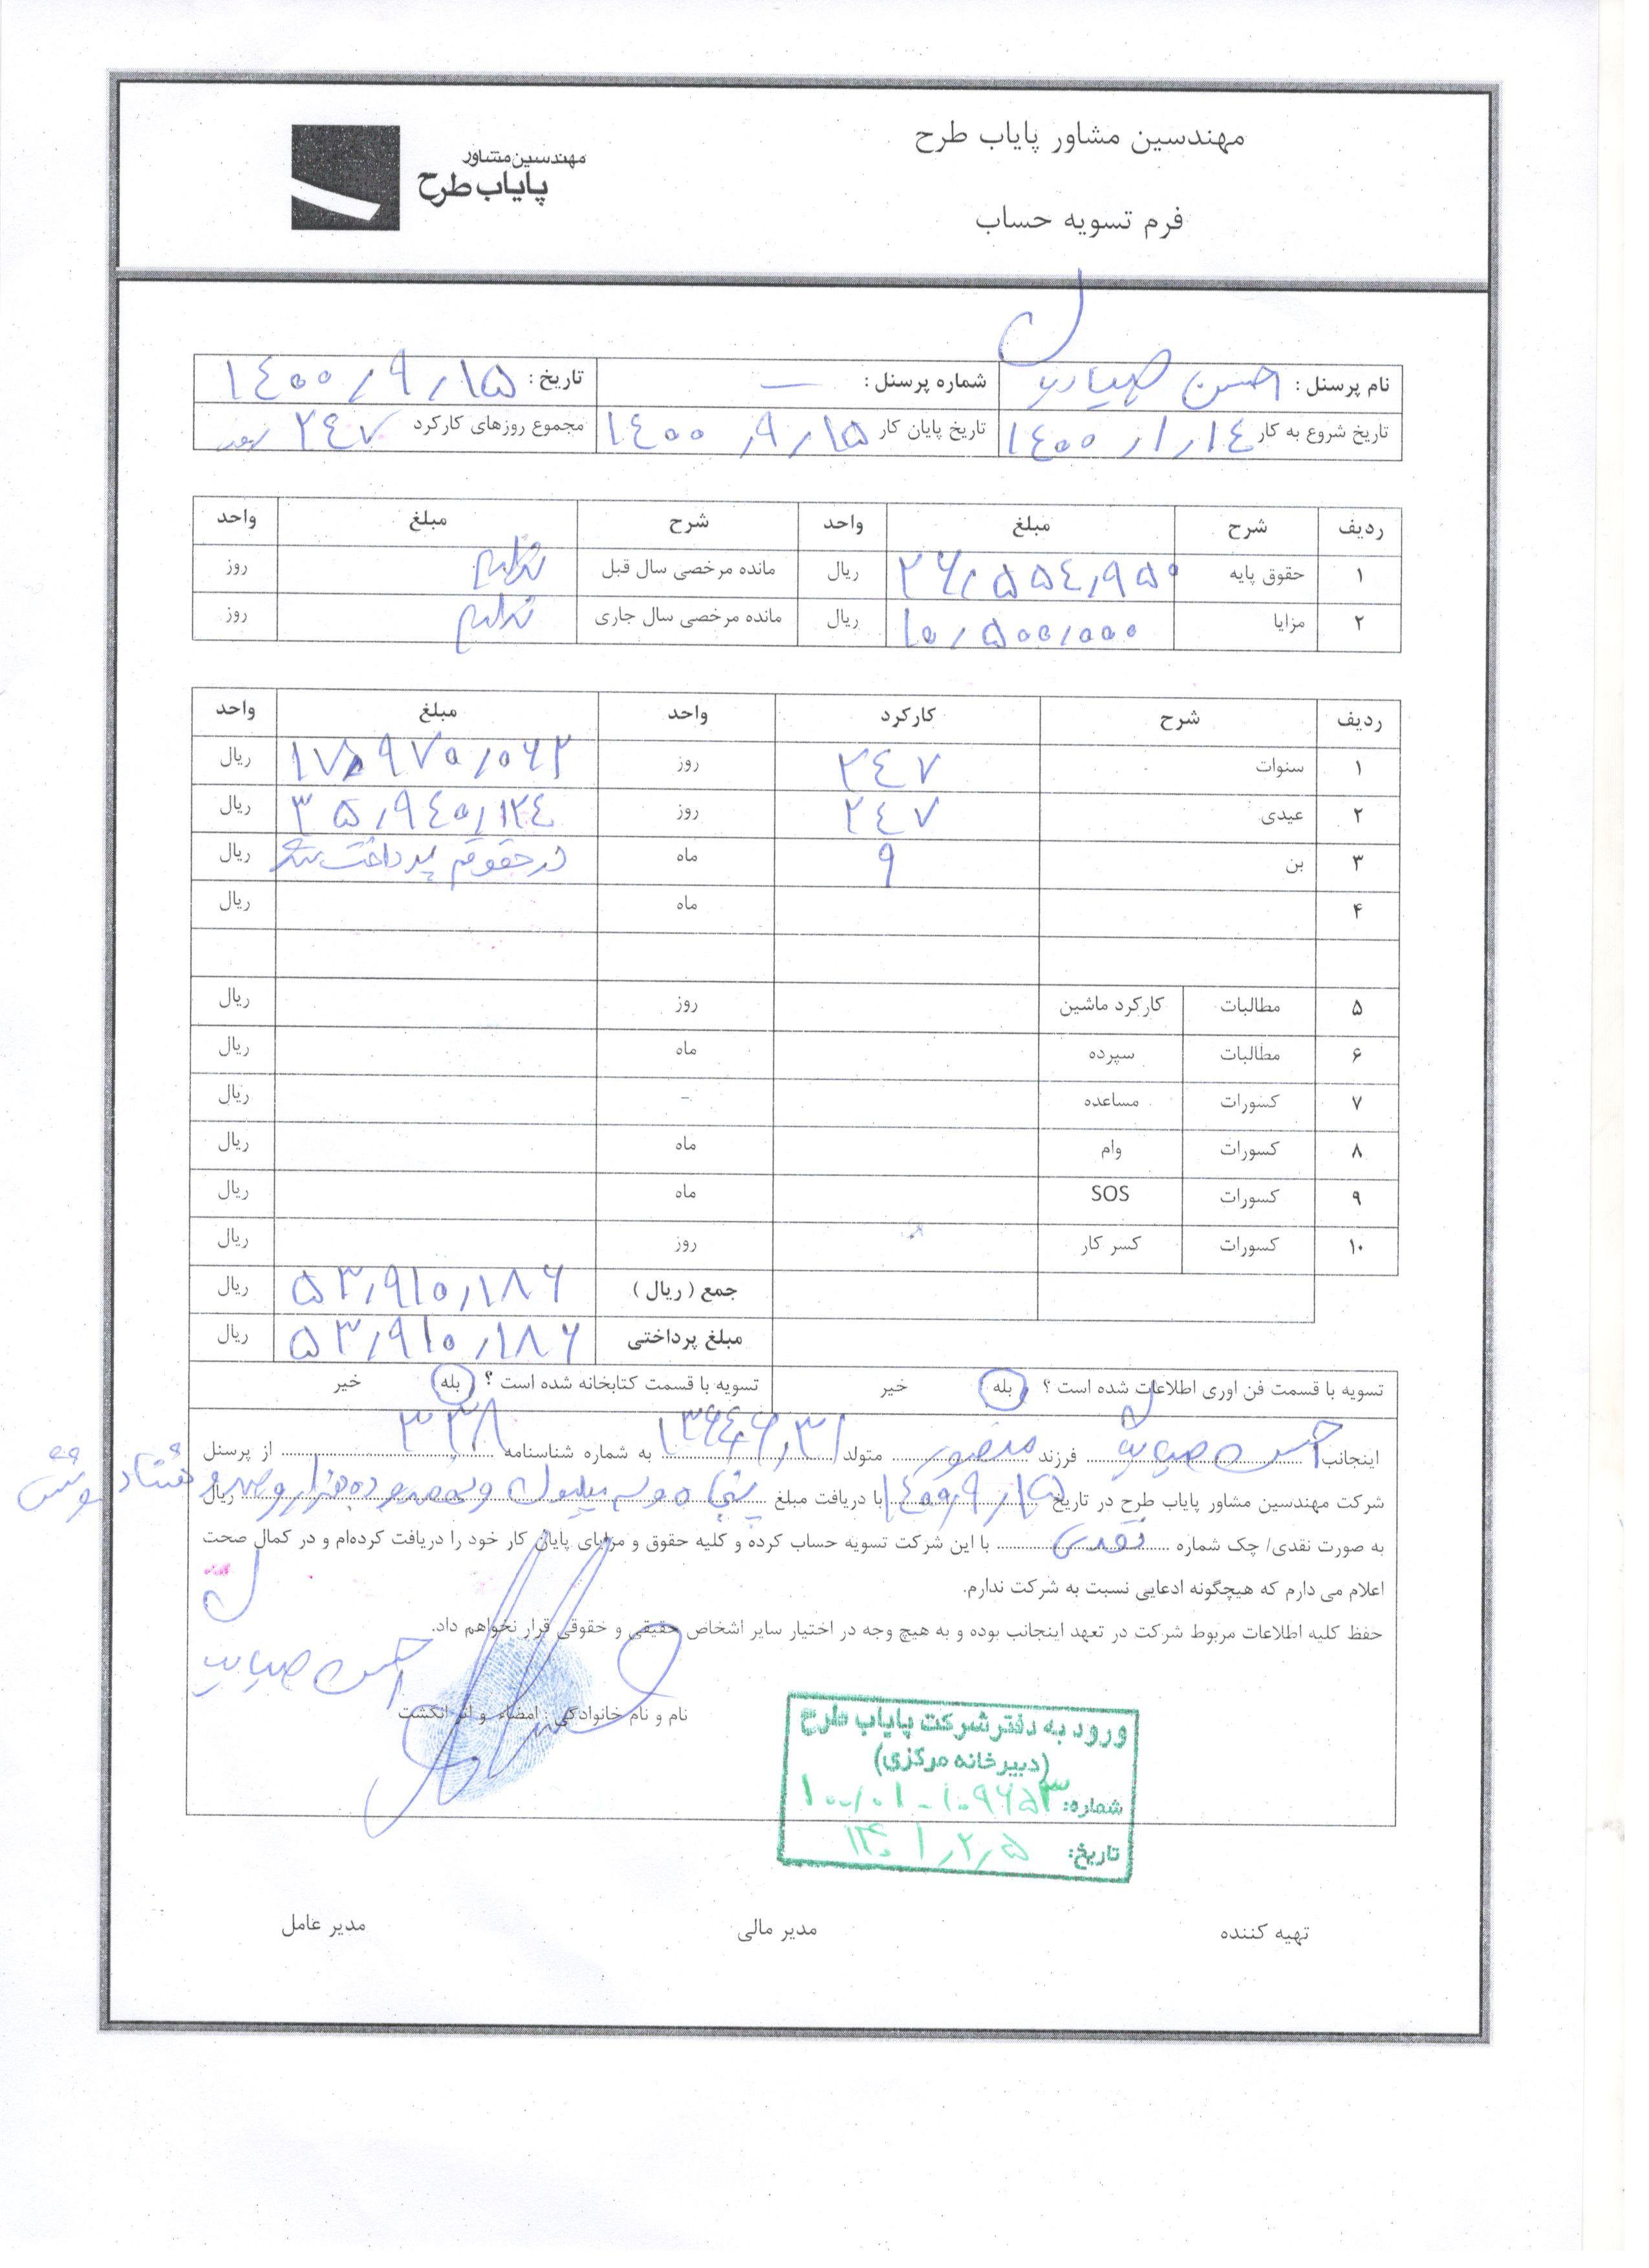 مهندسین مشاور پایاب طرح
مهندسین مشاور
پایاب طرح
فرم تسویه حساب
نام پرسنل : احسن
شماره پرسنل : —
تاریخ : ۱۴۰۰/۹/۱۵
تاریخ شروع به کار ۱۴۰۰/۱/۱۴
تاریخ پایان کار ۱۴۰۰/۹/۱۵
مجموع روزهای کارکرد ۲۴۷ روز
ردیف شرح مبلغ واحد شرح مبلغ واحد
۱ حقوق پایه ۲۶/۵۵۴/۹۵۰ ریال مانده مرخصی سال قبل ندارم روز
۲ مزایا ۱۰/۵۰۰/۰۰۰ ریال مانده مرخصی سال جاری ندارم روز
ردیف شرح کارکرد واحد مبلغ واحد
۱ سنوات ۲۴۷ روز ۱۷/۹۷۰/۰۶۲ ریال
۲ عیدی ۲۴۷ روز ۳۵/۹۴۰/۱۲۴ ریال
۳ بن ۹ ماه در حقوقم پرداخت شد ریال
۴ ماه ریال
۵ مطالبات کارکرد ماشین روز ریال
۶ مطالبات سپرده ماه ریال
۷ کسورات مساعده - ریال
۸ کسورات وام ماه ریال
۹ کسورات SOS ماه ریال
۱۰ کسورات کسر کار روز ریال
جمع ( ریال ) ۵۳/۹۱۰/۱۸۶ ریال
مبلغ پرداختی ۵۳/۹۱۰/۱۸۶ ریال
تسویه با قسمت فن اوری اطلاعات شده است ؟ بله خیر تسویه با قسمت کتابخانه شده است ؟ بله خیر
اینجانب احسن فرزند منصور متولد ۱۳۶۴/۶/۳۱ به شماره شناسنامه ۳۳۸ از پرسنل
شرکت مهندسین مشاور پایاب طرح در تاریخ ۱۴۰۰/۹/۱۵ با دریافت مبلغ پنجاه و سه میلیون و نهصد و ده هزار و صد و هشتاد و شش ریال
به صورت نقدی/ چک شماره نقدی با این شرکت تسویه حساب کرده و کلیه حقوق و مزایای پایان کار خود را دریافت کرده‌ام و در کمال صحت
اعلام می دارم که هیچگونه ادعایی نسبت به شرکت ندارم.
حفظ کلیه اطلاعات مربوط شرکت در تعهد اینجانب بوده و به هیچ وجه در اختیار سایر اشخاص حقیقی و حقوقی قرار نخواهم داد.
احسن
نام و نام خانوادگی : امضاء و اثر انگشت
ورود به دفتر شرکت پایاب طرح
(دبیرخانه مرکزی)
شماره: ۱۰۰/۰۱-۱۰۹۶۵۳
تاریخ: ۱۴۰۱/۲/۵
تهیه کننده مدیر مالی مدیر عامل